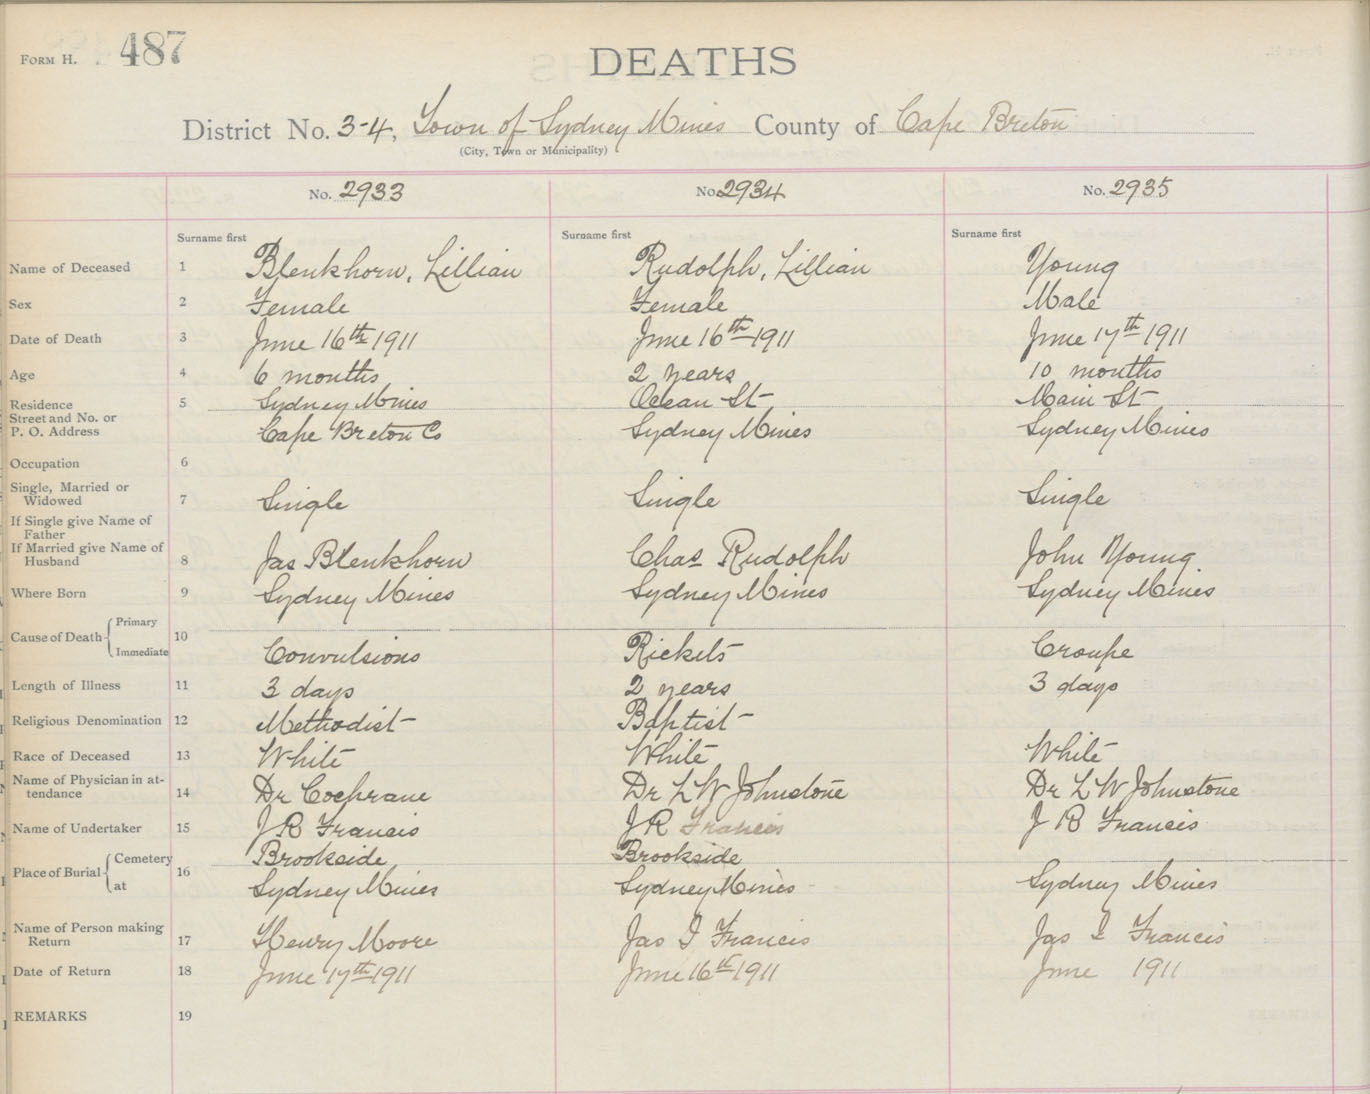 FORM H. 487
DEATHS
District No. 3-4, Town of Sydney Mines County of Cape Breton
(City, Town or Municipality)
No. 2933 No. 2934 No. 2935
Surname first Surname first Surname first
Name of Deceased 1 Blenkhorn, Lillian Rudolph, Lillian Young
Sex 2 Female Female Male
Date of Death 3 June 16th 1911 June 16th 1911 June 17th 1911
Age 4 6 months 2 years 10 months
Residence 5 Sydney Mines Ocean St Main St
Street and No. or
P. O. Address Cape Breton Co Sydney Mines Sydney Mines
Occupation 6
Single, Married or
Widowed 7 Single Single Single
If Single give Name of
Father
If Married give Name of
Husband 8 Jas Blenkhorn Chas Rudolph John Young
Where Born 9 Sydney Mines Sydney Mines Sydney Mines
Cause of Death Primary 10
Immediate Convulsions Rickets Croupe
Length of Illness 11 3 days 2 years 3 days
Religious Denomination 12 Methodist Baptist
Race of Deceased 13 White White White
Name of Physician in at-
tendance 14 Dr Cochrane Dr L W Johnstone Dr L W Johnstone
Name of Undertaker 15 J R Francis J R Francis J R Francis
Place of Burial Cemetery 16 Brookside Brookside
at Sydney Mines Sydney Mines Sydney Mines
Name of Person making
Return 17 Henry Moore Jas I Francis Jas I Francis
Date of Return 18 June 17th 1911 June 16th 1911 June 1911
REMARKS 19